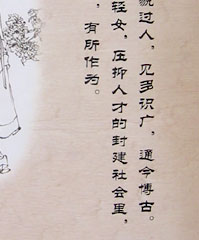 貌过人，见多识广，通今博古。
轻女，压抑人才的封建社会里，
，有所作为。